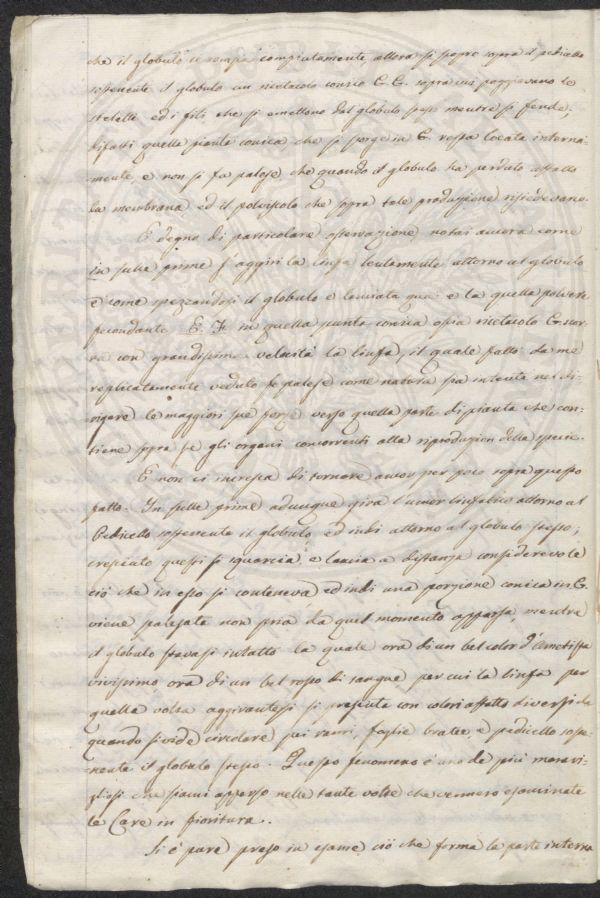 che il globulo si rompa compiutamente, allora si scopre sopra il pedicello
sostenente il globulo un ricetacolo conico G.G. sopra cui poggiavano le
stelette ed i fili che si emettono dal globulo stesso mentre si fende;
difatti quella pianta conica che si scorge in G. resta locata interna-
mente e non si fa palese, che quando il globulo ha perduto affatto
la membrana ed il polviscolo che sopra tale produzione risiedevano.
È degno di particolare osservazione notar ancora come
in sulle prime s'aggiri la linfa lentamente attorno al globulo
e come spezzandosi il globulo e lanciata qua e la quella polvere
fecondante G. F. in quella punta conica ossia ricetacolo G. scor-
ra con grandissima velocità la linfa, il quale fatto da me
replicatamente veduto fa palese come natura sia intenta nel di-
rigere le maggiori sue forze verso quella parte di pianta che con-
tiene sopra se gli organi concorrenti alla riproduzion della specie.
E non ci incresca di tornare ancor per poco sopra questo
fatto. In sulle prime adunque gira l'umor linfatico attorno al
Pedicello sostenente il globulo, ed indi attorno al globulo stesso;
cresciuto questi si squarcia, e lancia a distanza considerevole
ciò che in esso si conteneva ed indi una porzione conica in G.
viene palesata non pria da quel momento apparsa, mentre
il globulo stavasi intatto la quale ora di un bel color d'Ametista
vivissimo ora di un bel rosso di sangue per cui la linfa per
quella volta aggirantesi si presenta con colori affatto diversi da
quando si vide circolare pei rami, foglie bratee, e pedicello soste-
nente il globulo stesso. Questo fenomeno è uno de più maravi-
gliosi che siami apparso nelle tante volte che vennero esaminate
le Care in fioritura.
Si è pure preso in esame ciò che forma la parte interna